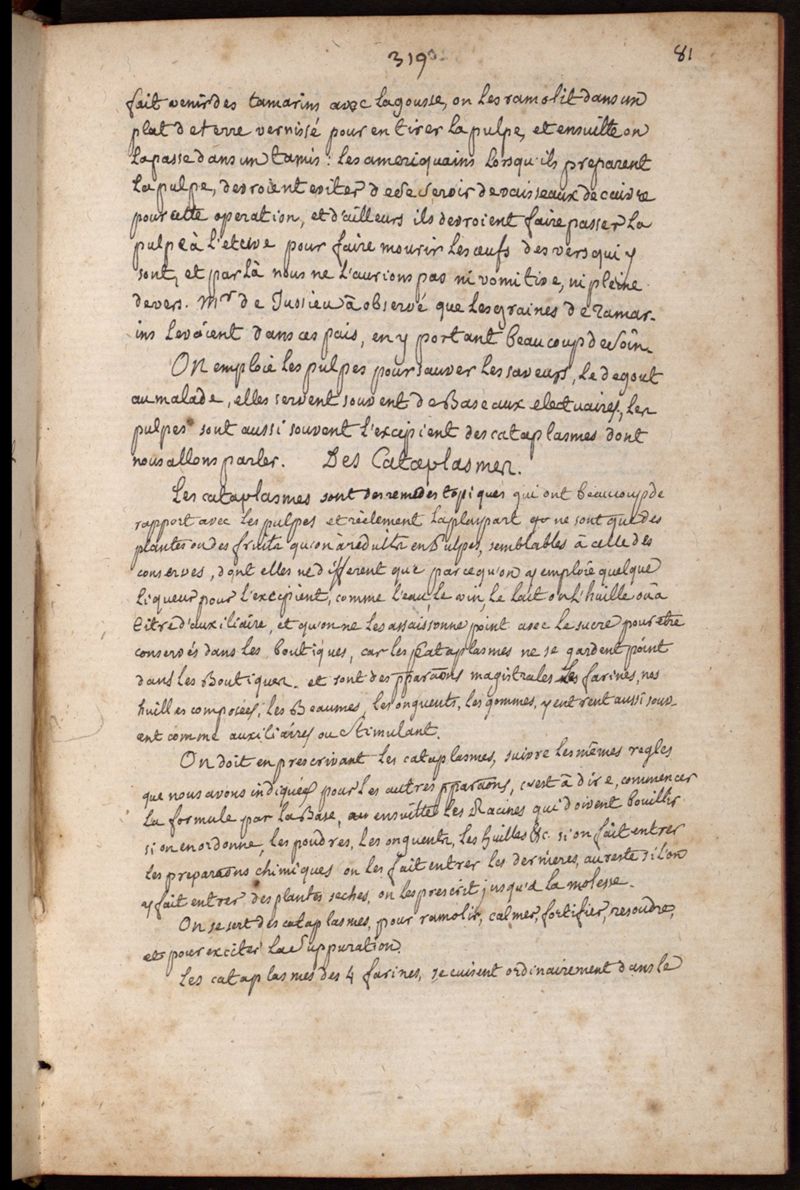 319
81
fait venir des tamarins avec la gousse, on les ramolit dans un
plat de terre vernissé pour en tirer la pulpe, et ensuitte on
la passe dans un tamis : les ameriquains lorsqu'ils preparent
la pulpe, devroient eviter de se servir de vaisseaux de cuivre
pour cette operation, et d'ailleurs ils devroient faire passer la
pulpe à l'etuve pour faire mourir les œufs des vers qui y
sont, et par là nous ne l'aurions pas ni vomitive, ni pleine
de vers. Mr de Jussieu à observé que les graines de Tamar-
ins levoient dans ces païs, en y portant beaucoup de soin.
On emploie les pulpes pour sauver les saveurs, le degout
au malade, elles servent souvent de Base aux electuaires, les
pulpes sont aussi souvent l'excipient des cataplasmes dont
nous allons parler. Des Cataplasmes.
Les cataplasmes sont des remedes topiques qui ont beaucoup de
rapport avec les pulpes et réelement la pluspart ne sont que des
plantes ou des fruits qu'on à réduits en Pulpes, semblables à celle des
conserves, dont elles ne different que parcequ'on y emploie quelque
liqueur pour l'excipient, comme l'eau, le vin, le lait ou l'huille ou à
titre d'auxiliaire, et qu'on ne les assaisonne point avec le sucre pour etre
conservés dans les boutiques, car les Cataplasmes ne se gardent point
dans les Boutiques. et sont des pparaons magistrales les farines, nos
huilles composées, les Beaumes, les onguents, les gommes, y entrent aussi souv-
ent comme auxiliaires ou Stimulant.
On doit en prescrivant les cataplasmes, suivre les mêmes regles
que nous avons indiquées pour les autres pparaons, c'est à dire, commencer
la formule par la Base, ensuitte les Racines qui doivent bouillir
si on en ordonne, les poudres, les onguents, les huilles &c. si on fait entrer
les preparaons chimiques on les fait entrer les dernieres, au reste si l'on
y fait entrer des plantes seches, on les prescrit jusqu'à la molesse.
On se sert des cataplasmes, pour ramolir, calmer, fortifier, resoudre,
et pour exciter la Suppuration.
Les cataplasmes des 4 farines, se cuisent ordinairement dans le